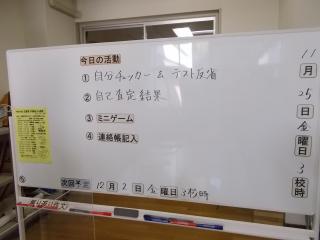 今日の活動
① 自分チェッカー & テスト反省
② 自己査定結果
③ ミニゲーム
④ 連絡帳記入
11月25日金曜日3校時
次回予定 12月2日金曜日3校時